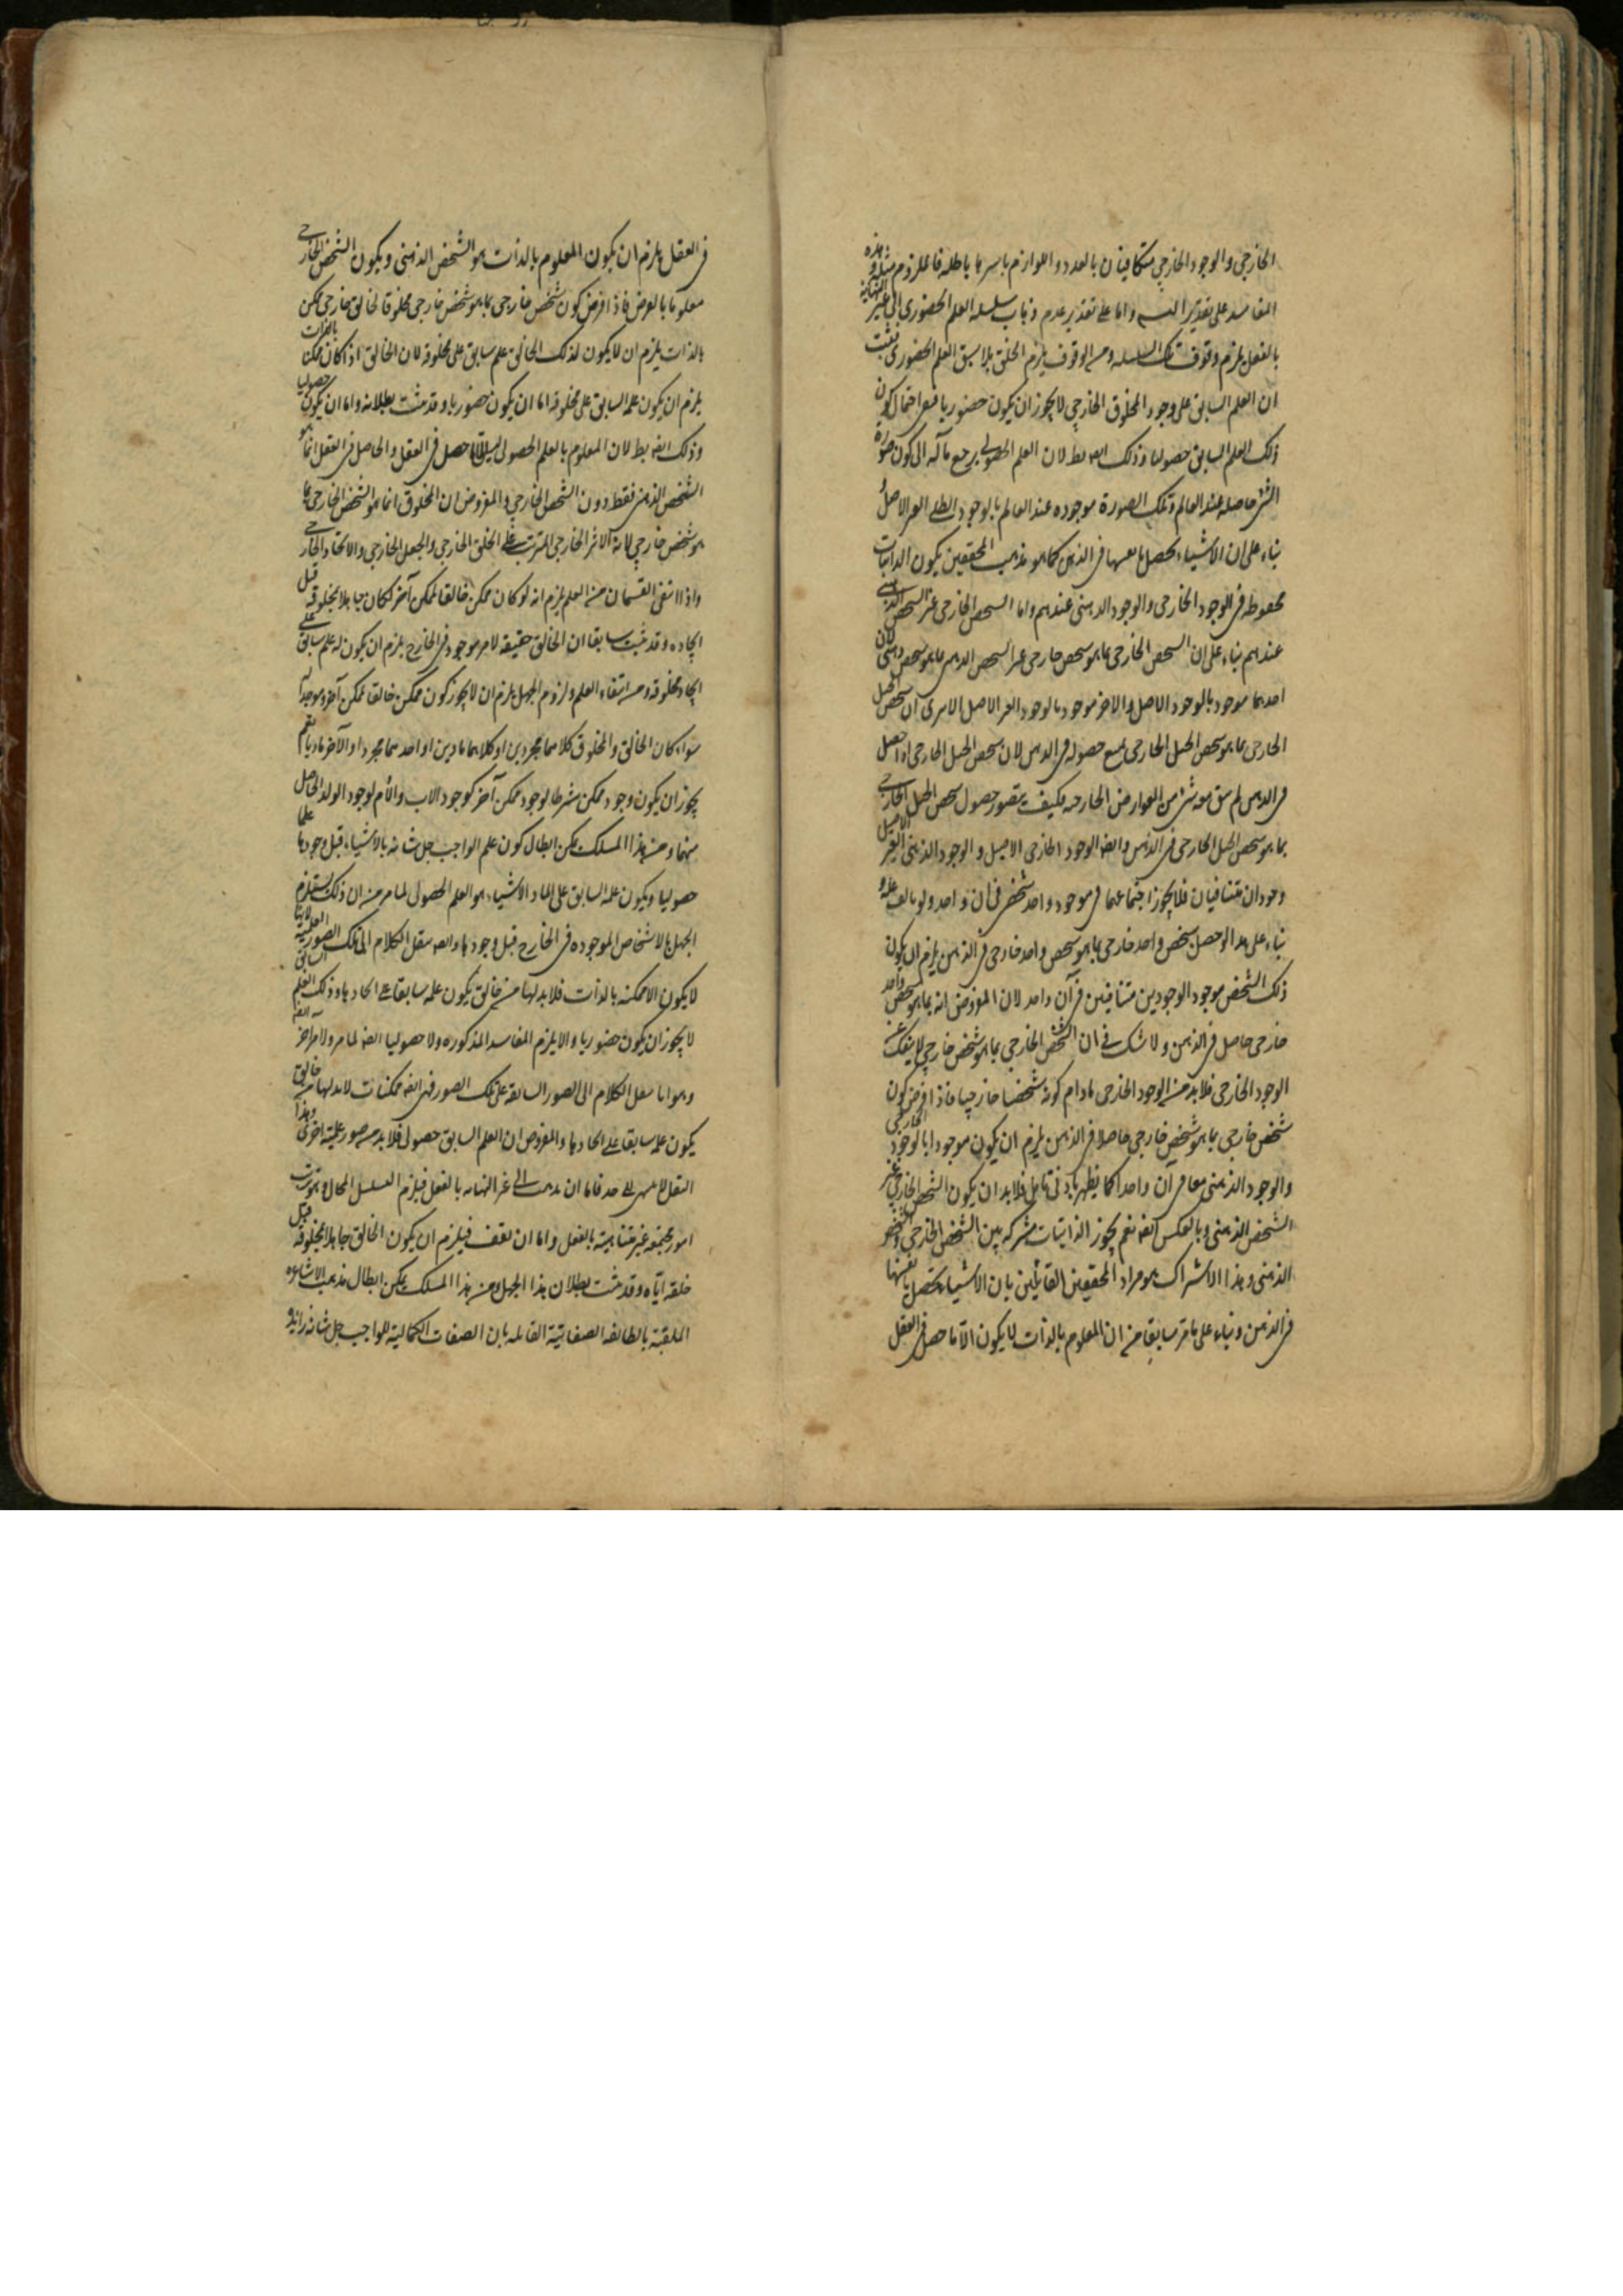 الخارجى والوجود الخارجى متكافيتان بالعدد واللوازم باسرها باطلة فالملزوم مثله وهذه
المفاسد على تقدير التسم واما على تقدير عدم ذهاب سلسله العلم الحضورى الى غير النهاية
بالفعل يلزم وقوف تلك السلسله ومن الوقوف يلزم الخلق بلا سبق العلم الحضورى فثبت
ان العلم السابق على وجود المخلوق الخارجى لا يجوز ان يكون حضوريا فبقى احتمال كون
ذلك العلم السابق حصوليا وذلك ايضه بط لان العلم الحصولى يرجع مآله الى كون صورة
الشئ حاصله عند العالم وتلك الصورة موجوده عند العالم بالوجود الظلى الغير الاصيل
بناء على ان الاشياء يحصل بانفسها فى الذهن كما هو مذهب المحققين يكون الذاتيات
محفوظه فى الوجود الخارجى والوجود الذهنى عندهم واما الشخص الخارجى غير الشخص الذهنى
عندهم بناء على ان الشخص الخارجى بما هو شخص خارجى غير الشخص الذهنى بما هو شخص ذهنى لان
احدهما موجود بالوجود الاصيل والاخر موجود بالوجود الغير الاصيل الا ترى ان شخص الجبل
الخارجى بما هو شخص الجبل الخارجى يمنع حصوله فى الذهن لان شخص الجبل الخارجى اذا حصل
فى الذهن لم يبق معه شئ من العوارض الخارجيه فكيف يتصور حصول شخص الجبل الخارجى
بما هو شخص الجبل الخارجى فى الذهن وايضه الوجود الخارجى الاصيل والوجود الذهنى الغير الاصيل
وجودان متنافيان فلا يجوز اجتماعهما فى موجود واحد شخصى فى ان واحد ولو بالف علة
بناء على هذا لو حصل شخص واحد خارجى بما هو شخص واحد خارجى فى الذهن يلزم ان يكون
ذلك الشخص موجود الوجودين متنافيين فى آن واحد لان المفروض انه بما هو شخص واحد
خارجى حاصل فى الذهن ولا شك فى ان الشخص الخارجى بما هو شخص خارجى لا ينفك عن
الوجود الخارجى فلا بد من الوجود الخارجى مادام كونه شخصا خارجيا فاذا فرض كون
شخص خارجى بما هو شخص خارجى حاصلا فى الذهن يلزم ان يكون موجودا بالوجود الخارجى
والوجود الذهنى معا فى آن واحد كما يظهر بادنى تامل فلا بد ان يكون الشخص الخارجى غير
الشخص الذهنى وبالعكس ايضه نعم يجوز الذاتيات مشركه بين الشخص الخارجى والشخص
الذهنى وهذا الاشتراك هو مراد المحققين القائلين بان الاشياء يحصل بانفسها
فى الذهن وبناء على ما مر سابقا من ان المعلوم بالذات لا يكون الا ما حصل فى العقل
فى العقل يلزم ان يكون المعلوم بالذات هو الشخص الذهنى ويكون الشخص الخارجى
معلوما بالعرض فاذا فرض كون شخص خارجى بما هو شخص خارجى مخلوقا لخالق خارجى ممكن
بالذات يلزم ان لا يكون لذلك الخالق علم سابق على مخلوقه لان الخالق اذا كان ممكنا بالذات
يلزم ان يكون علمه السابق على مخلوقه اما ان يكون حضوريا وقد مثبت بطلانه واما ان يكون حصوليا
وذلك ايضه بط لان المعلوم بالعلم الحصولى ليس الا ما حصل فى العقل والحاصل فى العقل انما هو
الشخص الذهنى فقط دون الشخص الخارجى والمفروض ان المخلوق انما هو الشخص الخارجى بما
هو شخص خارجى لانه الاثر الخارجى المترتب على الخلق الخارجى والجعل الخارجى والايجاد الخارجى
واذا انتفى القسمان من العلم يلزم انه لو كان ممكن خالقا لممكن آخر لكان جاهلا بمخلوقه قبل
ايجاده وقد ثبت سابقا ان الخالق حقيقة لامر موجود فى الخارج يلزم ان يكون له علم سابق على
ايجاد مخلوقه ومن انتفاء العلم ولزوم الجهل يلزم ان لا يجوز كون ممكن خالقا لممكن آخر وموجدا له
سواء كان الخالق والمخلوق كلاهما مجردين او كلاهما ماديين او احدهما مجردا والآخر ماديا نعم
يجوز ان يكون وجود ممكن شرطا لوجود ممكن آخر كوجود الاب والام لوجود الولد الحاصل
منهما ومن هذا المسلك يمكن ابطال كون علم الواجب جل شانه بالاشياء قبل وجودها علما
حصوليا ويكون علمه السابق على ايجاد الاشياء هو العلم الحصولى لما مر من ان ذلك يستلزم
الجهل بالاشخاص الموجوده فى الخارج قبل وجودها وايضه ننقل الكلام الى تلك الصور العلمية لانها
لا يكون الا ممكنة بالذات فلا بد لها من خالق يكون علمه سابقا على ايجادها وذلك العلم السابق
لا يجوز ان يكون حضوريا والا يلزم المفاسد المذكوره ولا حصوليا ايضه لما مر ولامر آخر ايضه
وهو انا ننقل الكلام الى الصور السابقة على تلك الصور فهى ايضه ممكنات لا بد لها من خالق
يكون علمه سابقا على ايجادها والمفروض ان العلم السابق حصولى فلا بد من صور علمية اخرى وهذا
النقل لا ينتهى الى حد فاما ان يذهب الى غير النهايه بالفعل فيلزم التسلسل المحال وهو ترتب
امور مجتمعه غير متناهية بالفعل واما ان تقف فيلزم ان يكون الخالق جاهلا بمخلوقه قبل
خلقه اياه وقد مثبت بطلان هذا الجهل ومن هذا المسلك يمكن ابطال مذهب الاشاعره
الملقبة بالطائفه الصفاتية القائله بان الصفات الكمالية للواجب جل شانه زائدة